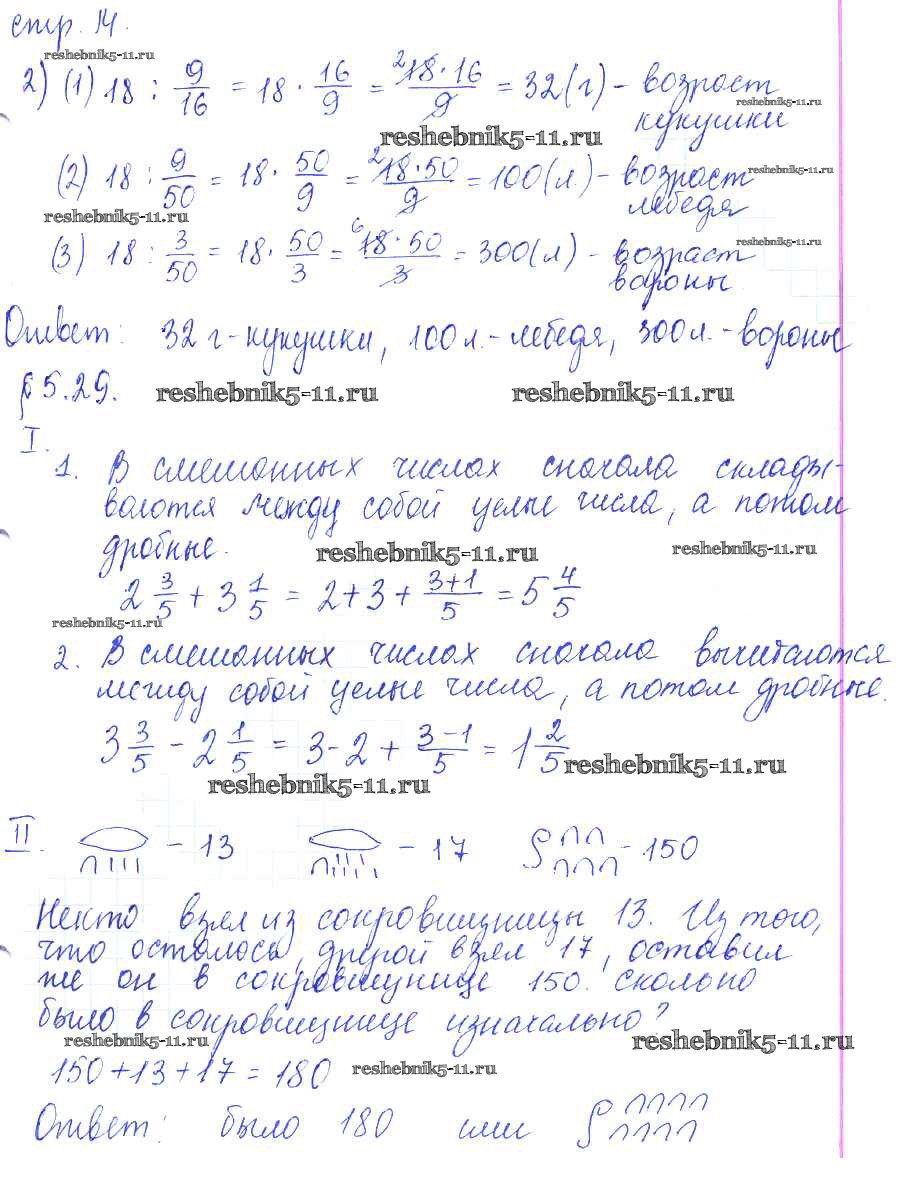 стр. 14.
reshebnik5-11.ru
2) (1) 18 : 9/16 = 18 · 16/9 = 18·16/9 = 32 (г) - возраст кукушки
reshebnik5-11.ru
reshebnik5-11.ru
(2) 18 : 9/50 = 18 · 50/9 = 18·50/9 = 100 (л) - возраст лебедя
reshebnik5-11.ru
reshebnik5-11.ru
(3) 18 : 3/50 = 18 · 50/3 = 18·50/3 = 300 (л) - возраст вороны
reshebnik5-11.ru
Ответ: 32 г - кукушки, 100 л. - лебедя, 300 л. - вороны
§ 5.29.
reshebnik5-11.ru reshebnik5-11.ru
I.
1. В смешанных числах сначала складыва-
ются между собой целые числа, а потом
дробные.
reshebnik5-11.ru reshebnik5-11.ru
2 3/5 + 3 1/5 = 2 + 3 + (3+1)/5 = 5 4/5
reshebnik5-11.ru
2. В смешанных числах сначала вычитаются
между собой целые числа, а потом дробные.
3 3/5 - 2 1/5 = 3 - 2 + (3-1)/5 = 1 2/5
reshebnik5-11.ru
reshebnik5-11.ru
II.
- 13 - 17 - 150
Некто взял из сокровищницы 13. Из того,
что осталось, другой взял 17, оставил
же он в сокровищнице 150. Сколько
было в сокровищнице изначально?
reshebnik5-11.ru reshebnik5-11.ru
150 + 13 + 17 = 180
reshebnik5-11.ru
Ответ: было 180 или